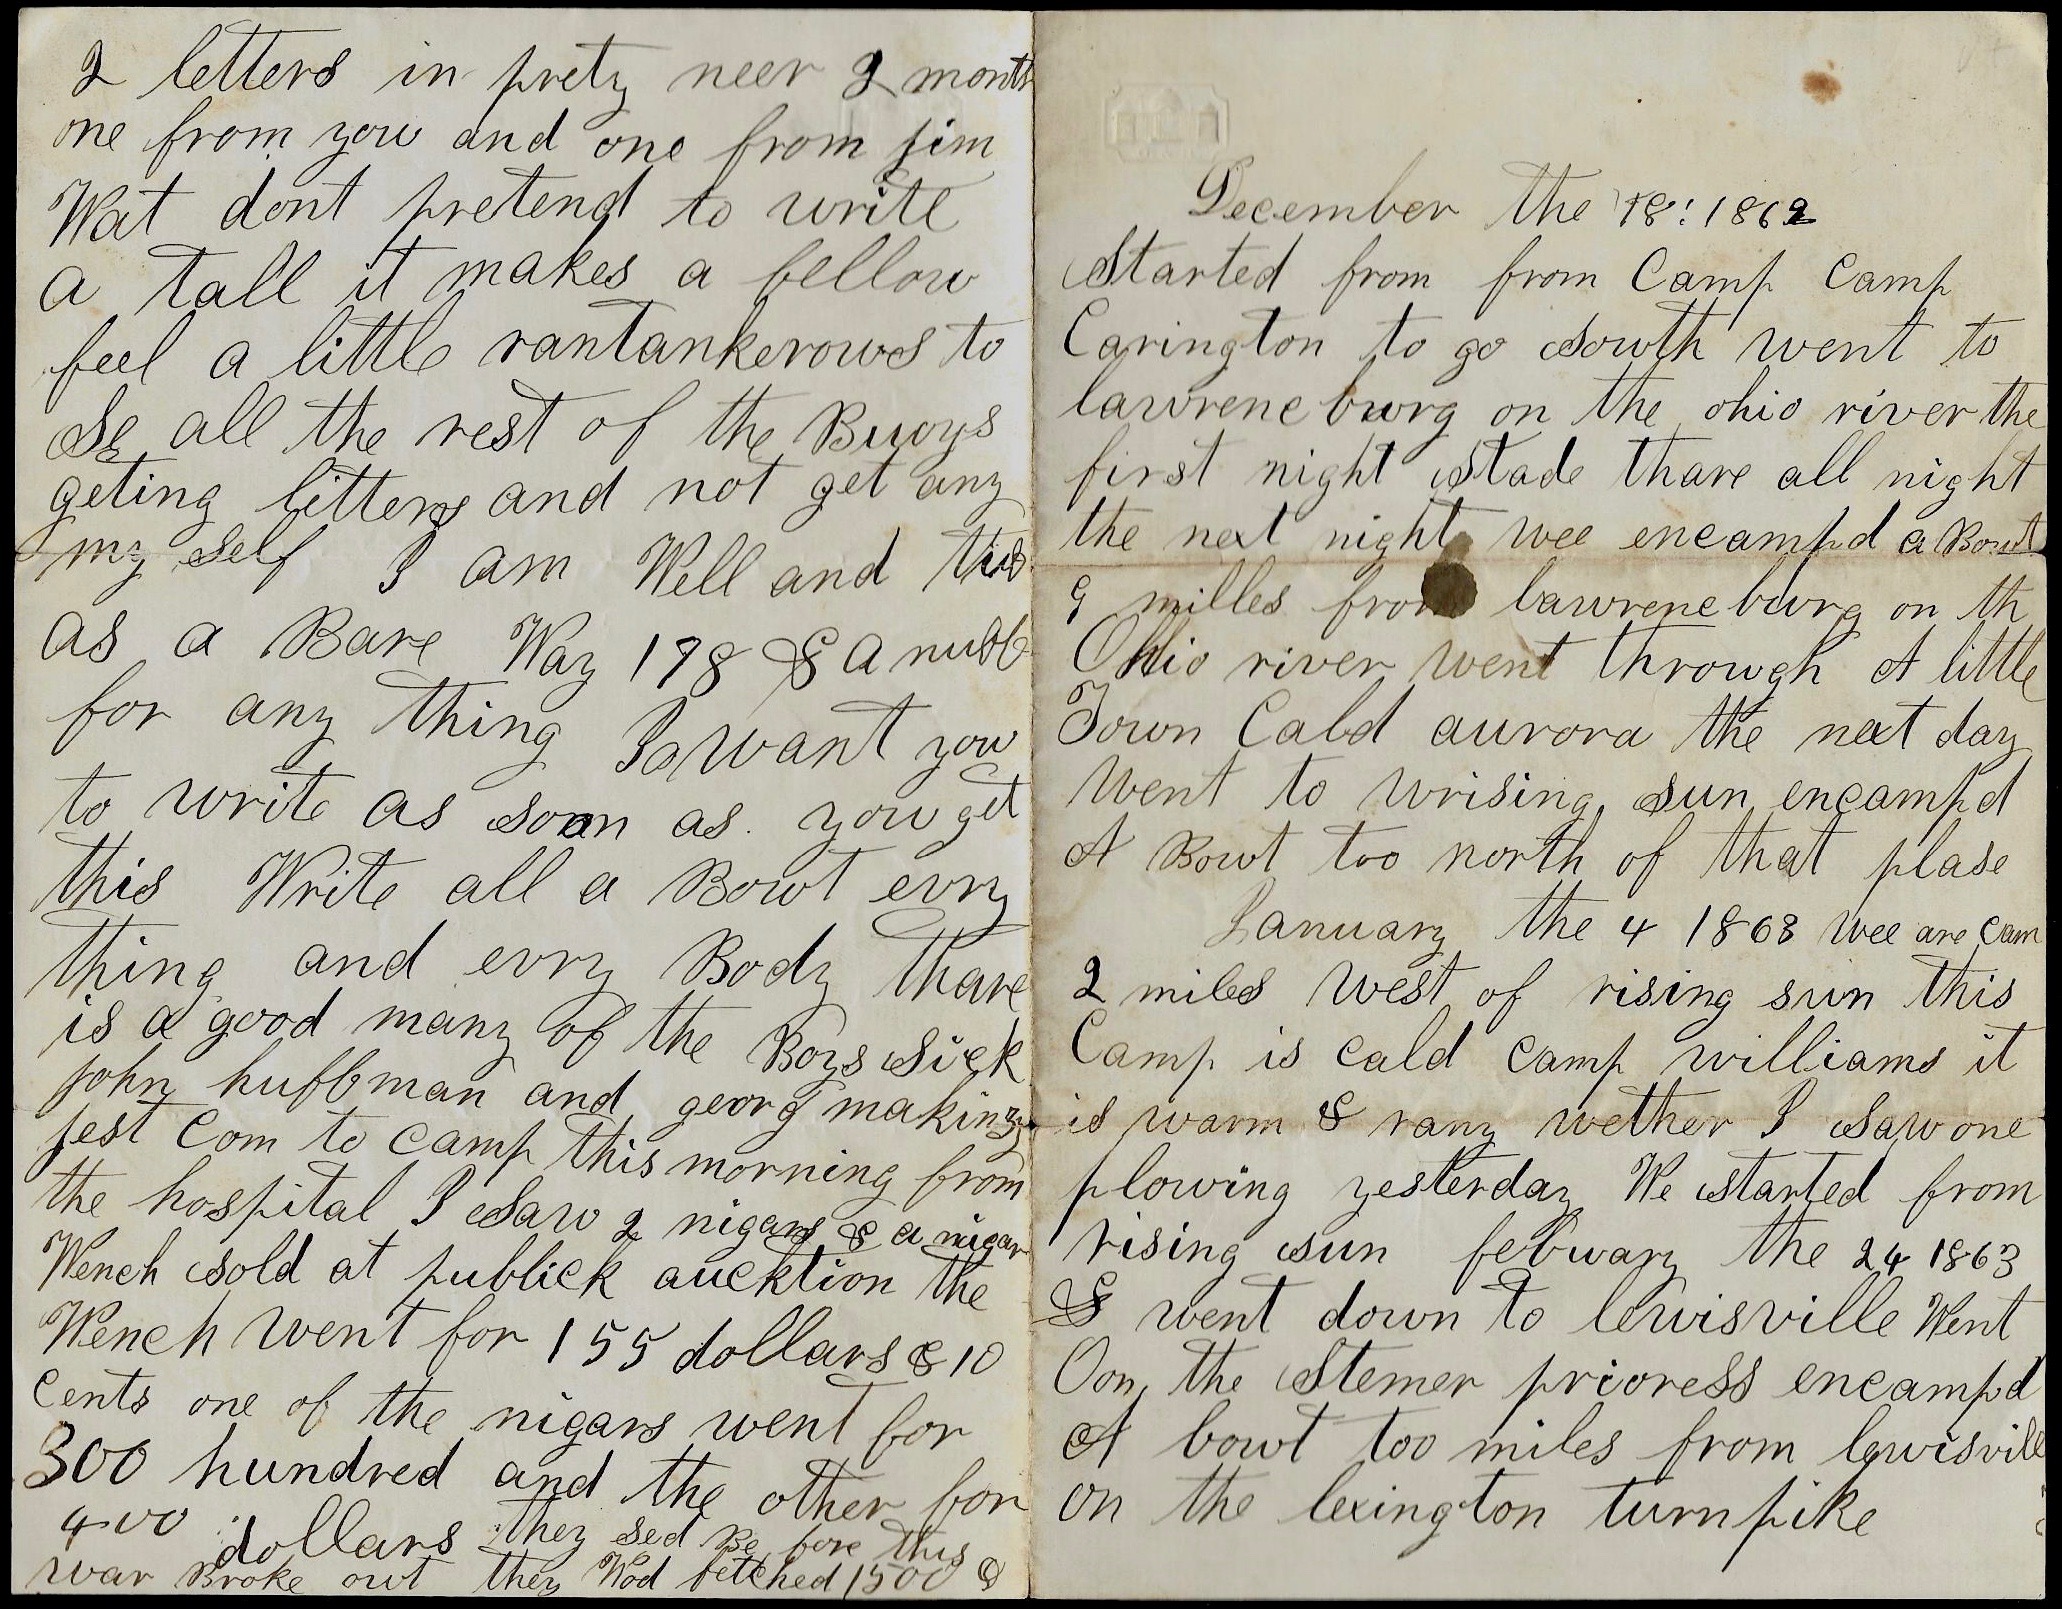 2 letters in prety neer 2 month
one from you and one from jim
Wat dont pretend to write
a tall it makes a fellow
feel a little rantankerows to
Se all the rest of the Buoys
geting litters and not get any
my self I am Well and
as a Bare Way 178 & a nubb
for any thing I want you
to write as soon as you get
this Write all a Bowt evry
thing and evry Body thare
is a good many of the Boys Sick
john huffman and georg making
jest Com to camp this morning from
the hospital I Saw 2 nigars & a nigar
Wench sold at publick aucktion the
Wench went for 155 dollars & 10
cents one of the nigars went for
300 hundred and the other for
400 dollars they sed Be fore this
war Broke owt they Wod fetched 1500 &
December the 18: 1862
Started from from Camp Camp
Carington to go sowth went to
lawrene burg on the ohio river the
first night Stade thare all night
the next night wee encampd a Bowt
9 milles from lawrene burg on th
Ohio river went throwgh A little
Town Cald aurora the next day
went to wrising sun encampd
A Bowt too north of that plase
January the 4 1863 wee are cam
2 miles west of rising sun this
Camp is cald camp williams it
is warm & rany wether I saw one
plowing yesterday We started from
rising sun febuary the 24 1863
& went down to lewisville Went
Oon the Stemer prioress encampd
A bowt too miles from lewisvill
on the lexington turnpike